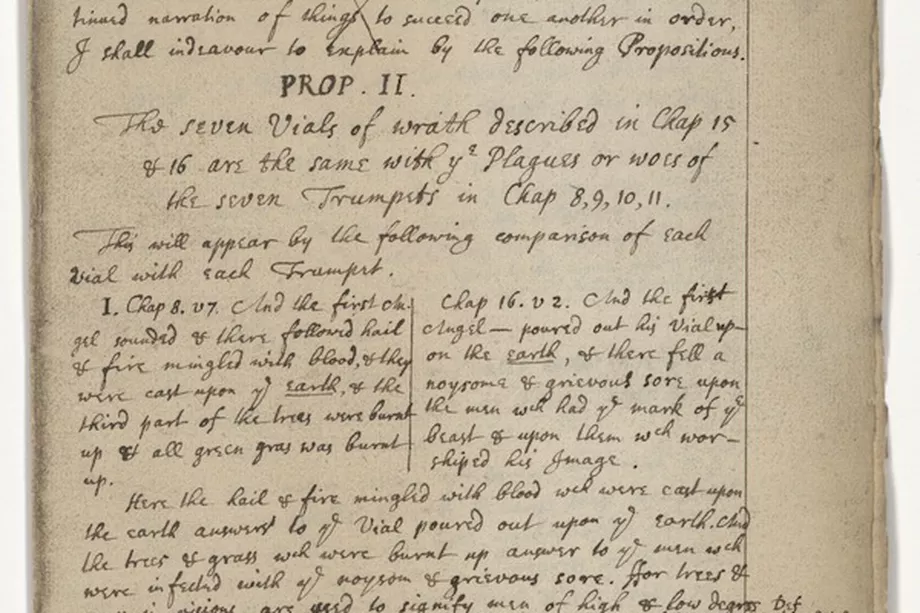 tinued narration of things to succeed one another in order,
I shall indeavour to explain by the following Propositions.
PROP. II.
The seven Vials of wrath described in Chap 15
& 16 are the same with yᵉ Plagues or woes of
the seven Trumpets in Chap 8, 9, 10, 11.
This will appear by the following comparison of each
Vial with each Trumpet.
1. Chap 8. v 7. And the first An-
gel sounded & there followed hail
& fire mingled with blood, & they
were cast upon yᵉ earth, & the
third part of the trees were burnt
up & all green gras was burnt
up.
Chap 16. v 2. And the first
Angel — poured out his Vial up-
on the earth, & there fell a
noysome & grievous sore upon
the men wᶜʰ had yᵉ mark of yᵉ
beast & upon them wᶜʰ wor-
shiped his Image.
Here the hail & fire mingled with blood wᶜʰ were cast upon
the earth answers to yᵉ Vial poured out upon yᵉ earth. And
the trees & grass wᶜʰ were burnt up answer to yᵉ men wᶜʰ
were infected with yᵉ noysom & grievous sore. Ffor trees &
are used to signify men of high & low degree Def